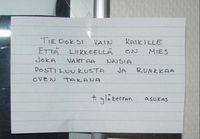 TIEDOKSI VAIN KAIKILLE
ETTÄ LIIKKEELLÄ ON MIES
JOKA VAHTAA NAISIA
POSTILUUKUSTA JA RUNKKAA
OVEN TAKANA
t. yläkerran asukas